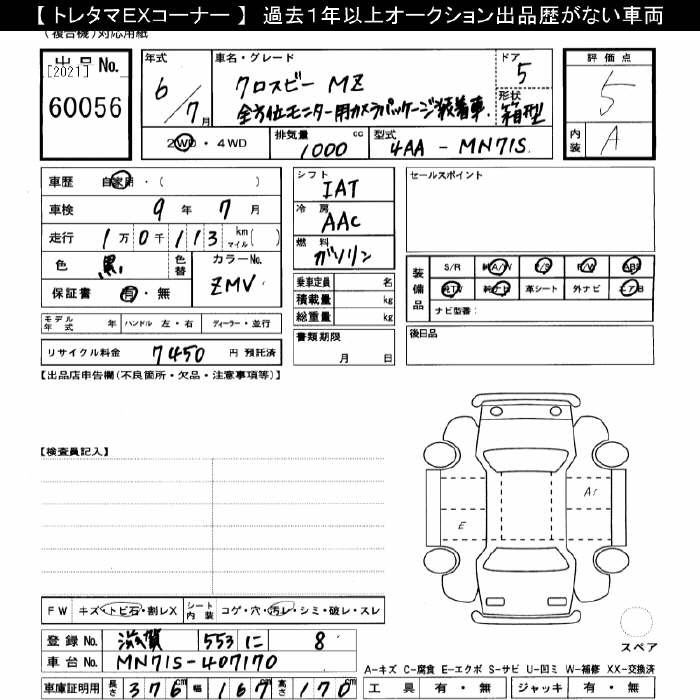 【トレタマEXコーナー】 過去1年以上オークション出品歴がない車両
(複合機)対応用紙
出品 No.
[2021]
60056
年式
6/7月
車名・グレード
クロスビー MZ
全方位モニター用カメラパッケージ装着車.
ドア
5
形状
箱型
評価点
5
内装
A
2WD・4WD
排気量
1000 cc
型式
4AA - MN71S
車歴 自家用・( )
車検 9年 7月
走行 1万0千113 km マイル( )
色 黒 色替
カラーNo.
ZMV
保証書 有・無
モデル年式 年 ハンドル 左・右 ディーラー・並行
リサイクル料金 7450 円 預託済
シフト
IAT
冷房
AAC
燃料
ガソリン
乗車定員 名
積載量 kg
総重量 kg
書類期限
月 日
セールスポイント
装備品
S/R 純A/W P/S P/W ABS
純TV 純ナビ 革シート 外ナビ エアB
ナビ型番:
後日品
【出品店申告欄(不良箇所・欠品・注意事項等)】
【検査員記入】
A1
E
FW キズ・トビ石・割レX シート内装 コゲ・穴・汚レ・シミ・破レ・スレ
登録 No. 滋賀 553 に 8
車台 No. MN71S-407170
車庫証明用 長さ 376cm 幅 167cm 高さ 170cm
スペア
A-キズ C-腐食 E-エクボ S-サビ U-凹ミ W-補修 XX-交換済
工具 有・無 ジャッキ 有・無